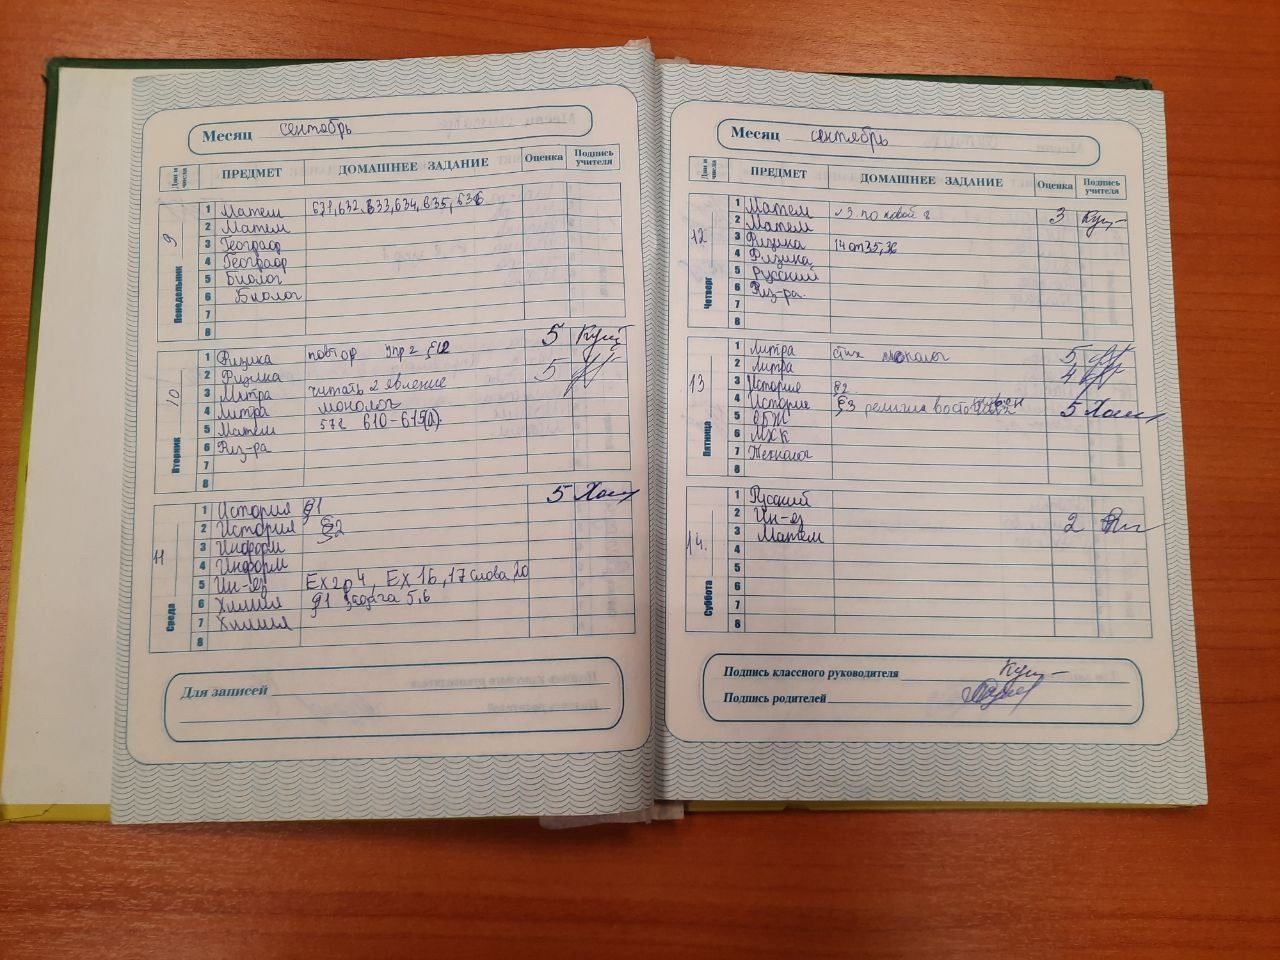 Месяц сентябрь
Дни и числа ПРЕДМЕТ ДОМАШНЕЕ ЗАДАНИЕ Оценка Подпись учителя
Понедельник 9
1 Матем 631,632,633,634,635,636
2 Матем
3 Географ
4 Географ
5 Биолог
6 Биолог
7
8
Вторник 10
1 Физика повтор упр 2 §1,2 5 Кущ
2 Физика 5
3 Литра читать 2 явление
4 Литра монолог
5 Матем 572 610-615(а).
6 Физ-ра
7
8
Среда 11
1 История §1 5
2 История §2
3 Информ
4 Информ
5 Ин-яз Ex 2 p 4, Ex 16, 17 слова 20
6 Химия §1 задача 5,6
7 Химия
8
Для записей
Месяц сентябрь
Дни и числа ПРЕДМЕТ ДОМАШНЕЕ ЗАДАНИЕ Оценка Подпись учителя
Четверг 12
1 Матем 3 Кущ
2 Матем
3 Физика 14 от 35,36
4 Физика
5 Русский
6 Физ-ра.
7
8
Пятница 13
1 Литра стих монолог 5
2 Литра 4
3 История §2
4 История §3 религия 5
5 ОБЖ
6 МХК
7 Технолог
8
Суббота 14.
1 Русский
2 Ин-яз 2
3 Матем
4
5
6
7
8
Подпись классного руководителя Кущ
Подпись родителей